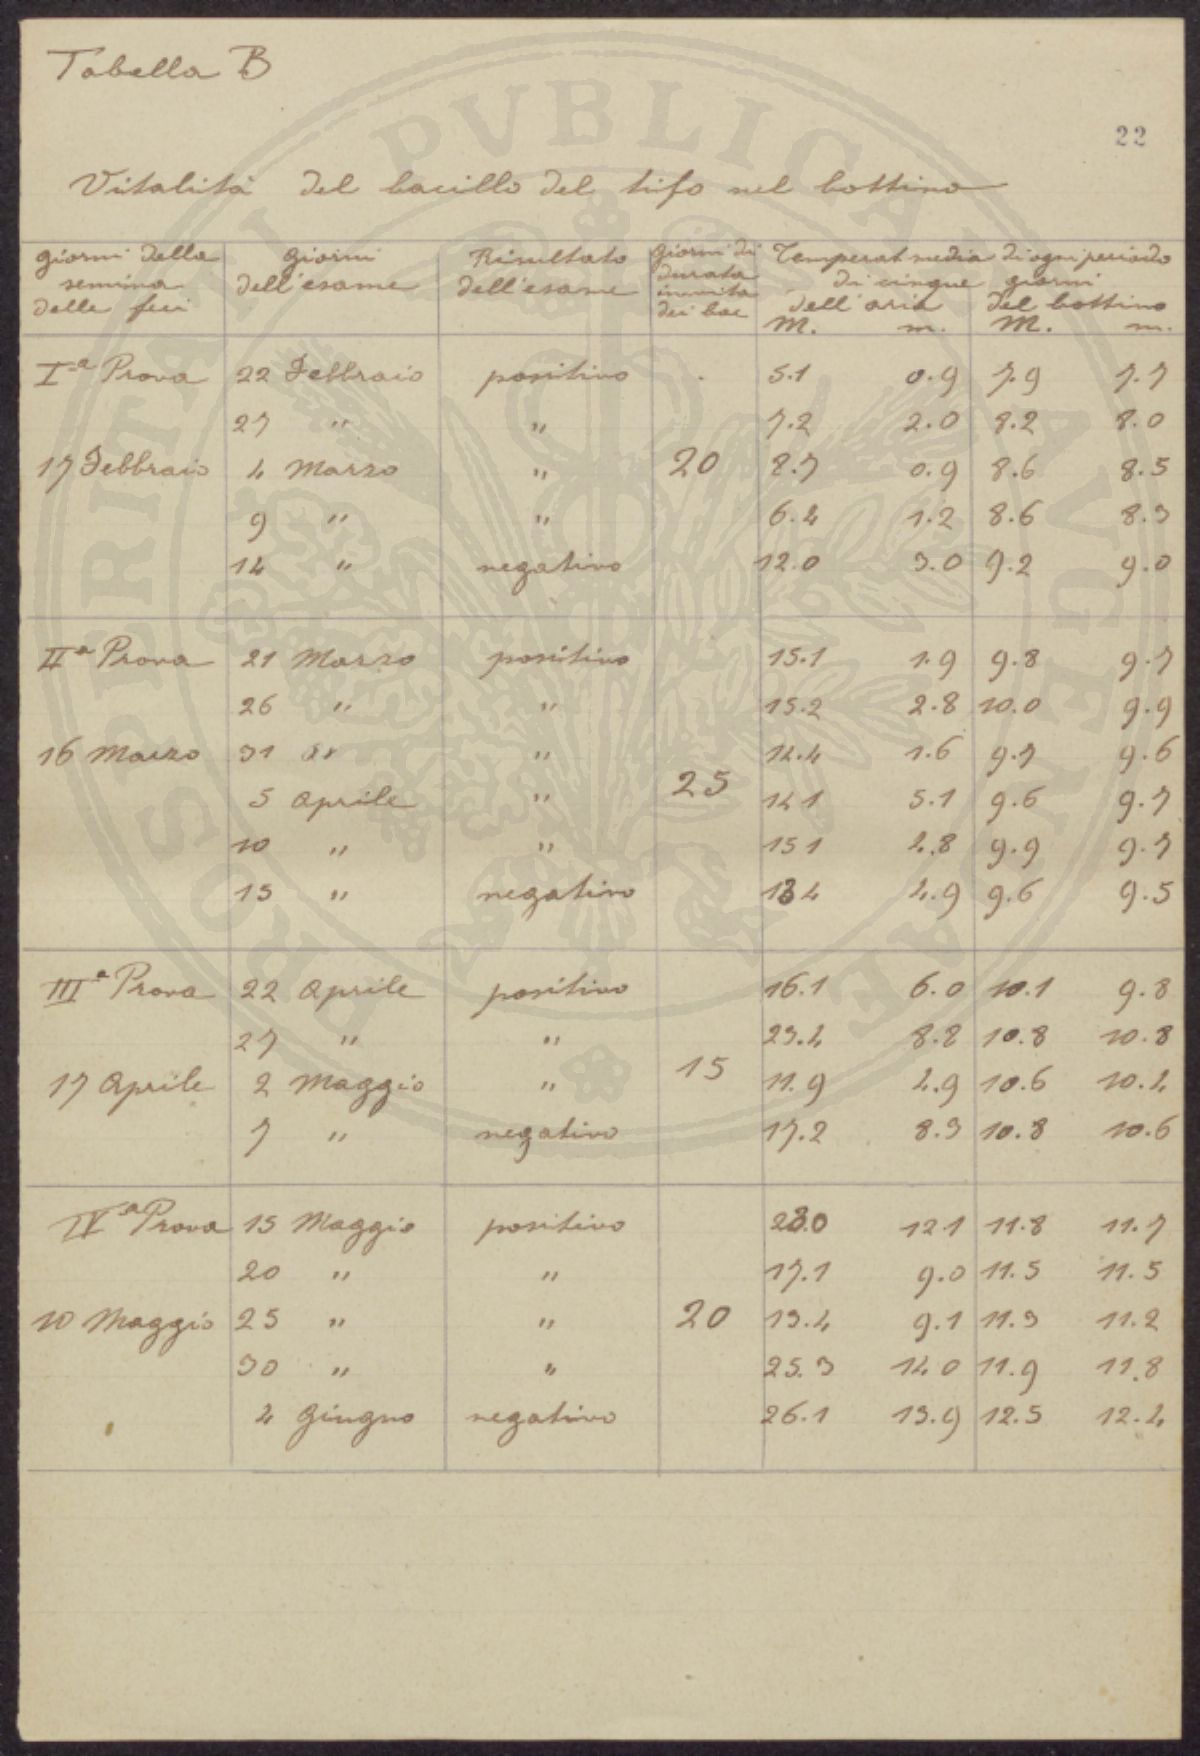 Tabella B
22
Vitalità del bacillo del tifo nel bottino
giorni della semina delle feci | Giorni dell'esame | Risultato dell'esame | Giorni di durata in vita dei bac | Temperat media di ogni periodo di cinque giorni
dell'aria | del bottino
M. m. M. m.
Iª Prova 22 Febbraio positivo 5.1 0.9 7.9 7.7
27 " " 7.2 2.0 8.2 8.0
17 Febbraio 4 Marzo " 20 8.7 0.9 8.6 8.5
9 " " 6.4 1.2 8.6 8.3
14 " negativo 12.0 3.0 9.2 9.0
IIª Prova 21 Marzo positivo 15.1 1.9 9.8 9.7
26 " " 15.2 2.8 10.0 9.9
16 Marzo 31 " " 14.4 1.6 9.7 9.6
5 Aprile " 25 14 1 5.1 9.6 9.7
10 " " 15 1 4.8 9.9 9.7
15 " negativo 13 4 4.9 9.6 9.5
IIIª Prova 22 Aprile positivo 16.1 6.0 10.1 9.8
27 " " 23.4 8.8 10.8 10.8
17 Aprile 2 Maggio " 15 11.9 4.9 10.6 10.4
7 " negativo 17.2 8.3 10.8 10.6
IVª Prova 15 Maggio positivo 23.0 12 1 11.8 11.7
20 " " 17.1 9.0 11.5 11.5
10 Maggio 25 " " 20 13.4 9.1 11.3 11.2
30 " " 25.3 14 0 11.9 11.8
4 Giugno negativo 26.1 13.9 12.5 12.4
PROSPERITATI PVBLICAE AVGENDAE